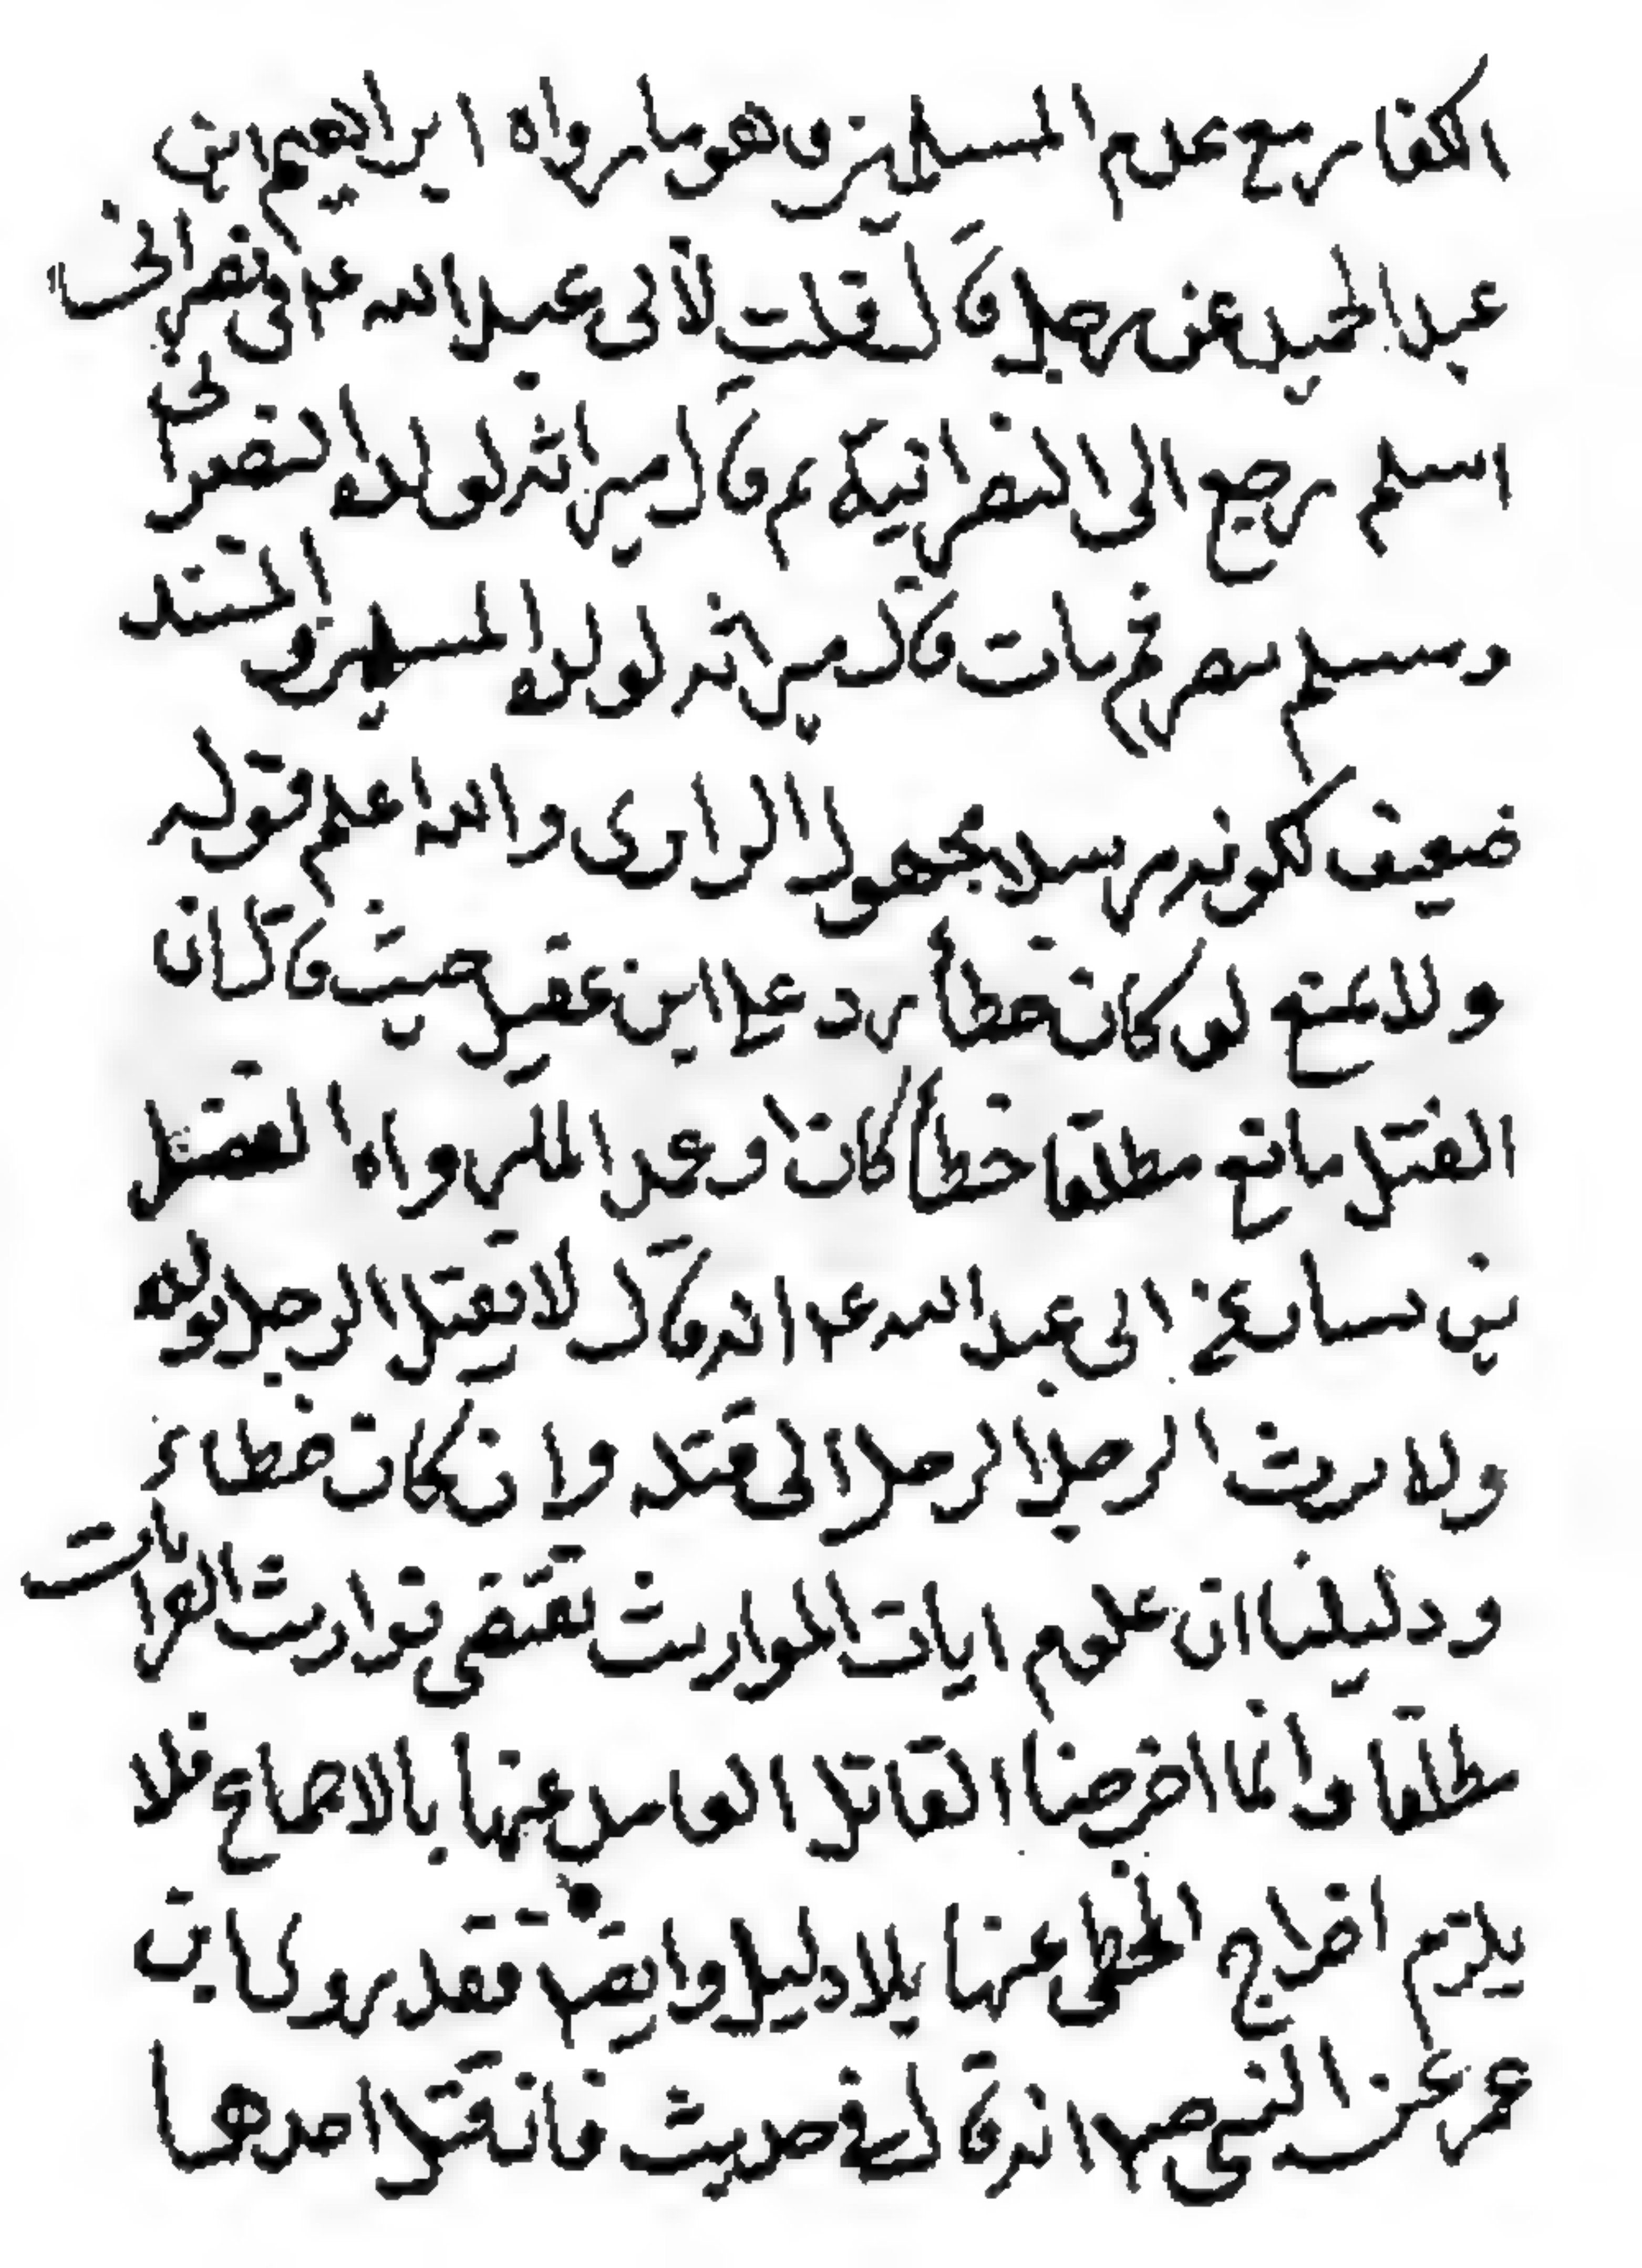 الكفار مع عدم المسلمين وهو ما رواه ابراهيم ابن
عبد الحميد عن رجل قال قلت لأبى عبد الله عم فى نصرانى
اسلم رجع الى النصرانية ثم قال ميراثه لولده النصرانى
ومسلم تنصر ثم مات قال ميراثه لولده المسلمين والمستند
ضعيف لكونه مرسلا مجهول الراوى والله اعلم قوله
ولا يمنع لو كان خطأ رد على ابن عقيل حيث قال ان
القتل مانع مطلقا خطأ كان او عمدا لما رواه الفضيل
بن يسار عن ابى عبد الله عم انه قال لا يقتل الرجل بولده
ولا يرث الرجل الرجل اذا قتله وان كان خطاء
ودليلنا ان عموم ايات المواريث تقتضى توارث القرابات
مطلقا وانما اخرجنا القاتل العامد عنها بالاجماع فلا
يلزم اخراج الخطى عنها بلا دليل وايضا فقد روى كا بن
عمر عن النبى ص انه قال فى حديث فان قتل احدهما